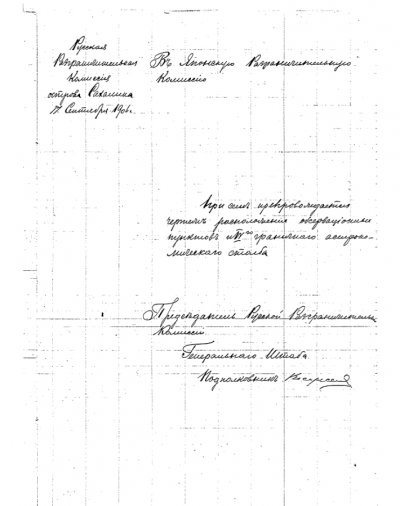 Русская
Разграничительная
Комиссия
острова Сахалина
Сентября 1906 г.
Въ Японскую Разграничительную
Комиссію
При семъ препровождается
чертежъ расположенія обсерваціонныхъ
пунктовъ и граничнаго астроно-
мическаго столба
Предсѣдатель Русской Разграничительной
Комиссіи
Генеральнаго Штаба
Подполковникъ